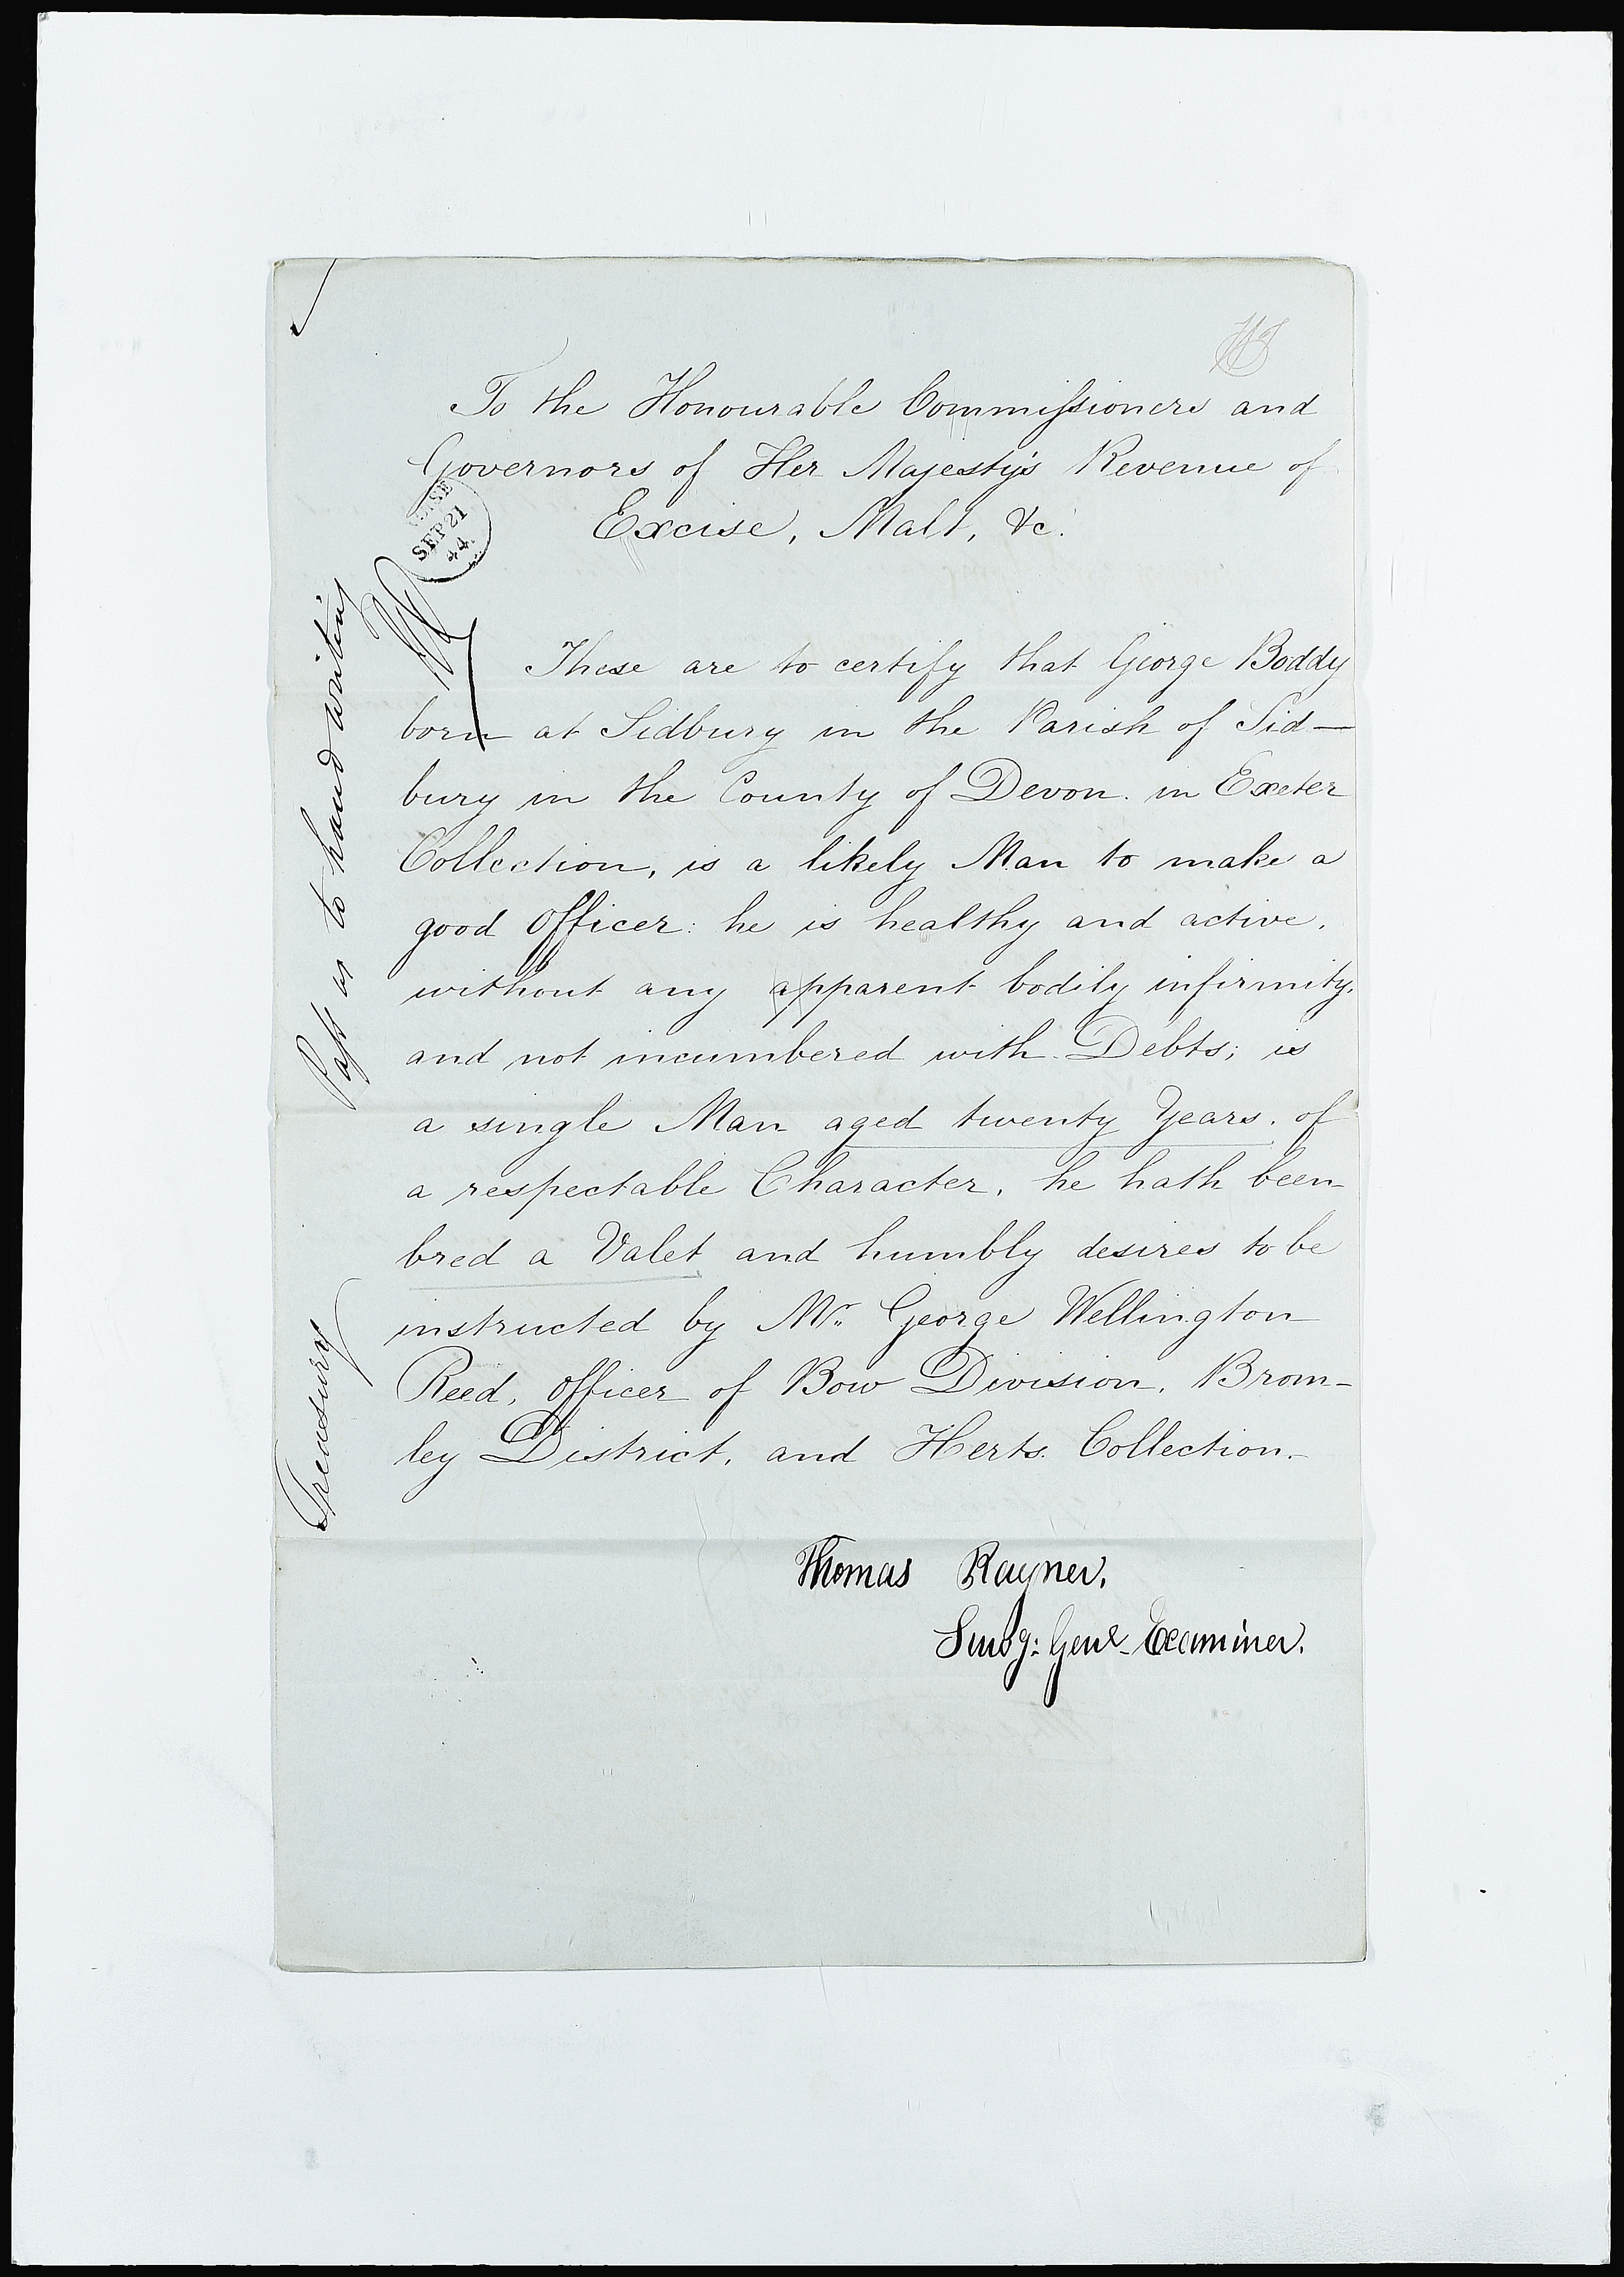 To the Honourable Commissioners and
Governors of Her Majesty's Revenue of
Excise, Malt, &c.
SEP 21
44
These are to certify that George Boddy
born at Sidbury in the Parish of Sid—
bury in the County of Devon. in Exeter
Collection, is a likely Man to make a
good Officer: he is healthy and active,
without any apparent bodily infirmity,
and not incumbered with Debts; is
a single Man aged twenty Years, of
a respectable Character, he hath been
bred a Valet and humbly desires to be
instructed by Mr. George Wellington
Reed, Officer of Bow Division, Brom-
ley District, and Herts. Collection.
Thomas Rayner,
Survg: Genl Examiner.
Pass as to hand writing
Treasury